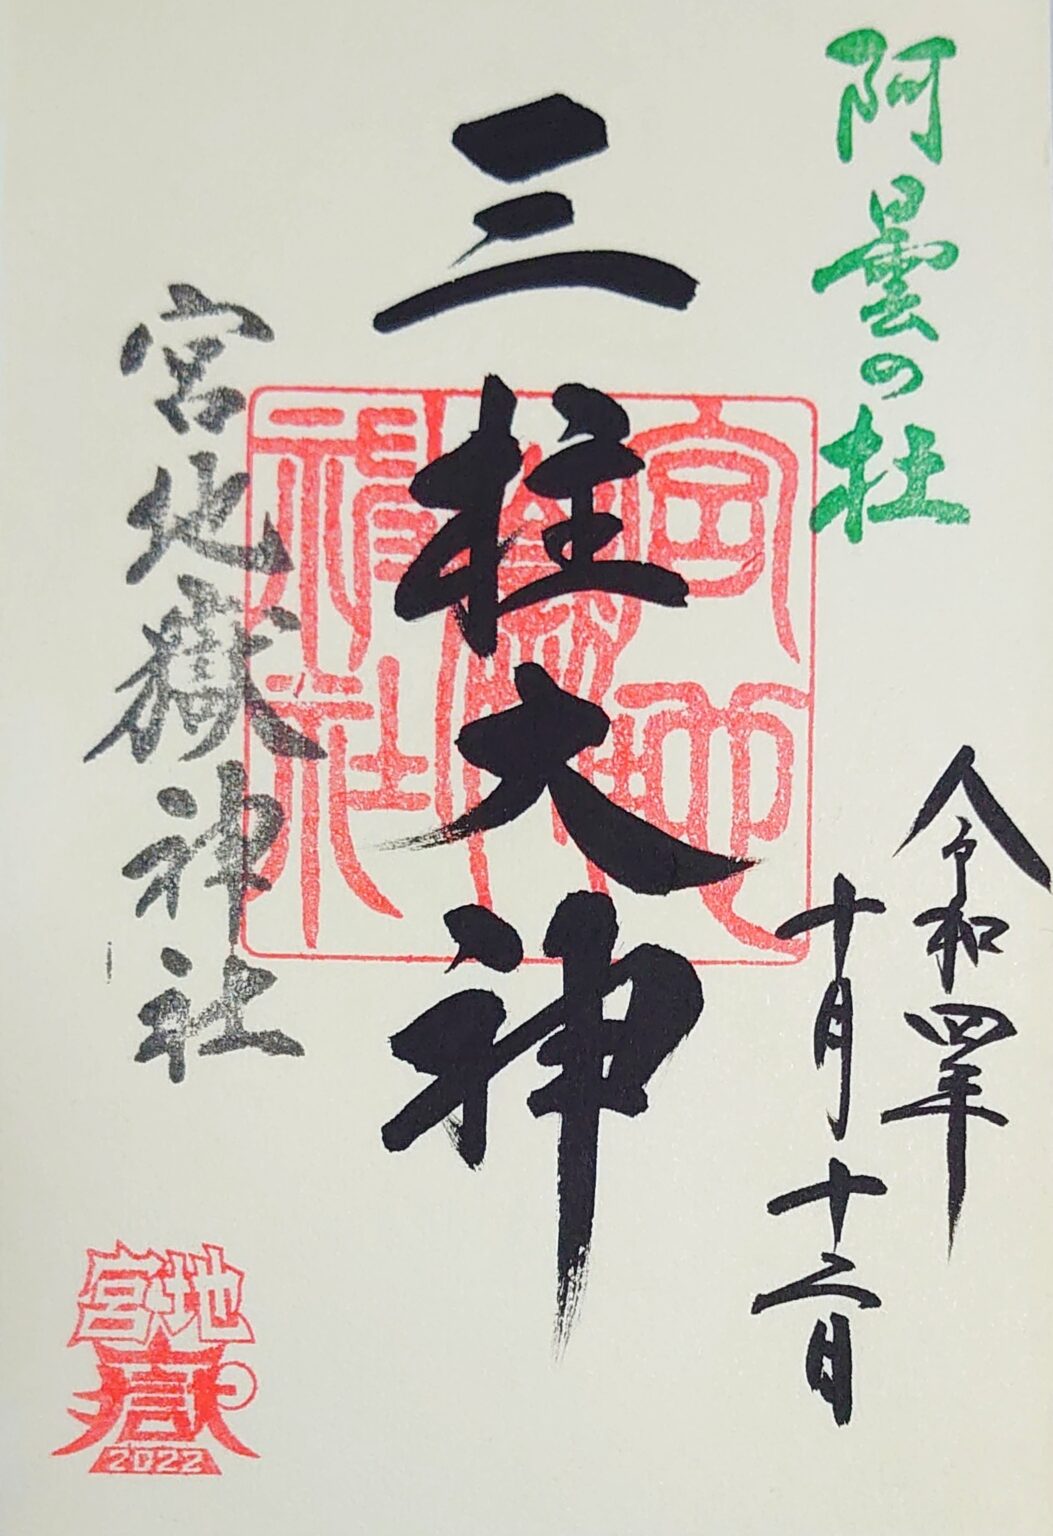 阿曇の杜
令和四年
十月十二日
三柱大神
宮地嶽神社
宮地
嶽神社
宮地
嶽
2022